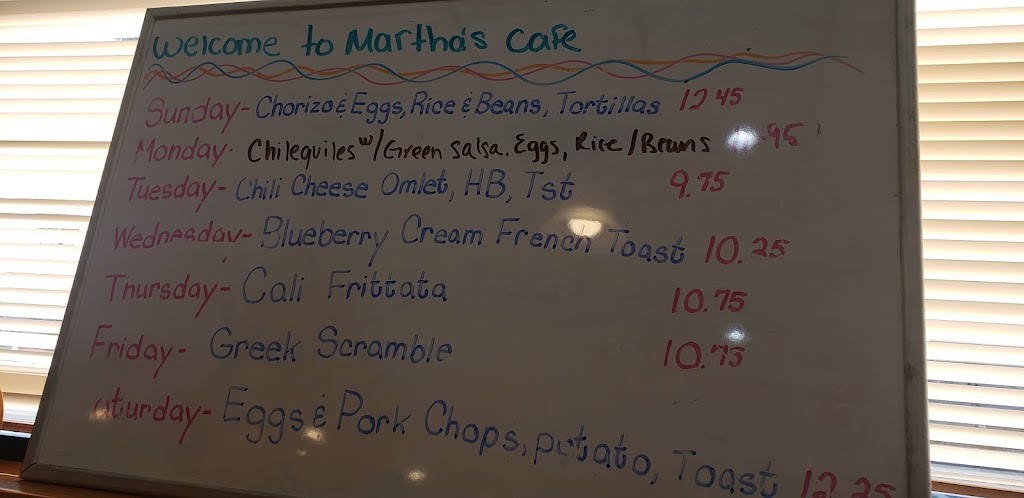 Welcome to Martha's Cafe
Sunday- Chorizo & Eggs, Rice & Beans, Tortillas 12 45
Monday- Chilequiles w/Green Salsa, Eggs, Rice/Beans .95
Tuesday- Chili Cheese Omlet, HB, Tst 9.75
Wednesday- Blueberry Cream French Toast 10.25
Thursday- Cali Frittata 10.75
Friday- Greek Scramble 10.75
aturday- Eggs & Pork Chops, potato, Toast 12.25